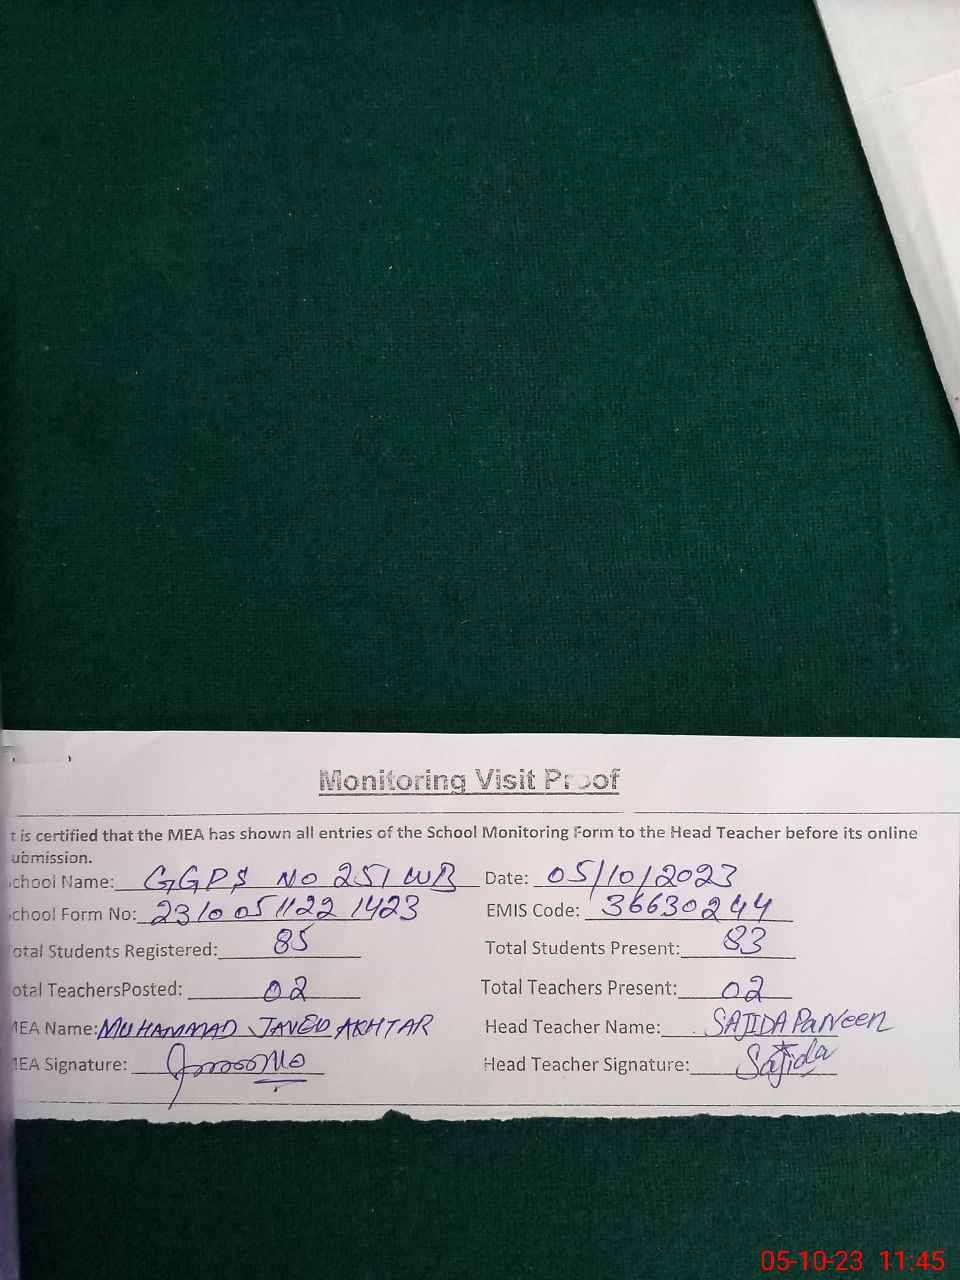 Monitoring Visit Proof
t is certified that the MEA has shown all entries of the School Monitoring Form to the Head Teacher before its online
ubmission.
chool Name: GGPS NO 251 WB Date: 05/10/2023
chool Form No: 23100511221423 EMIS Code: 36630244
otal Students Registered: 85 Total Students Present: 83
otal TeachersPosted: 02 Total Teachers Present: 02
MEA Name: MUHAMMAD JAVED AKHTAR Head Teacher Name: SAJIDA PaRveen
MEA Signature: Head Teacher Signature: Sajida
05-10-23 11:45